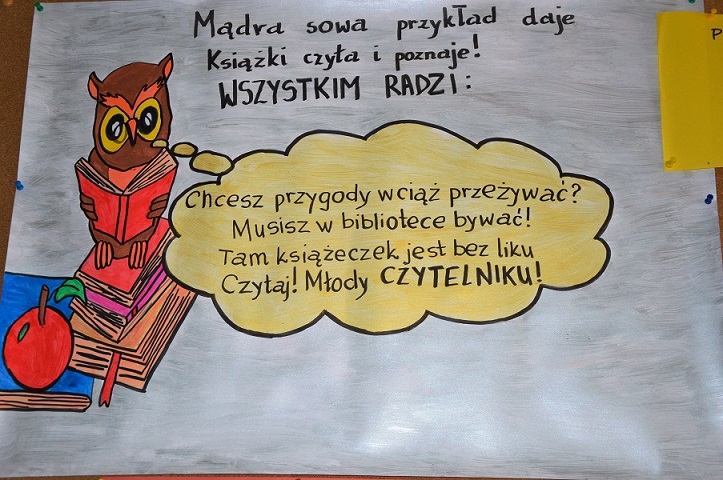 Mądra sowa przykład daje
Książki czyta i poznaje!
WSZYSTKIM RADZI:
Chcesz przygody wciąż przeżywać?
Musisz w bibliotece bywać!
Tam książeczek jest bez liku
Czytaj! Młody CZYTELNIKU!
P